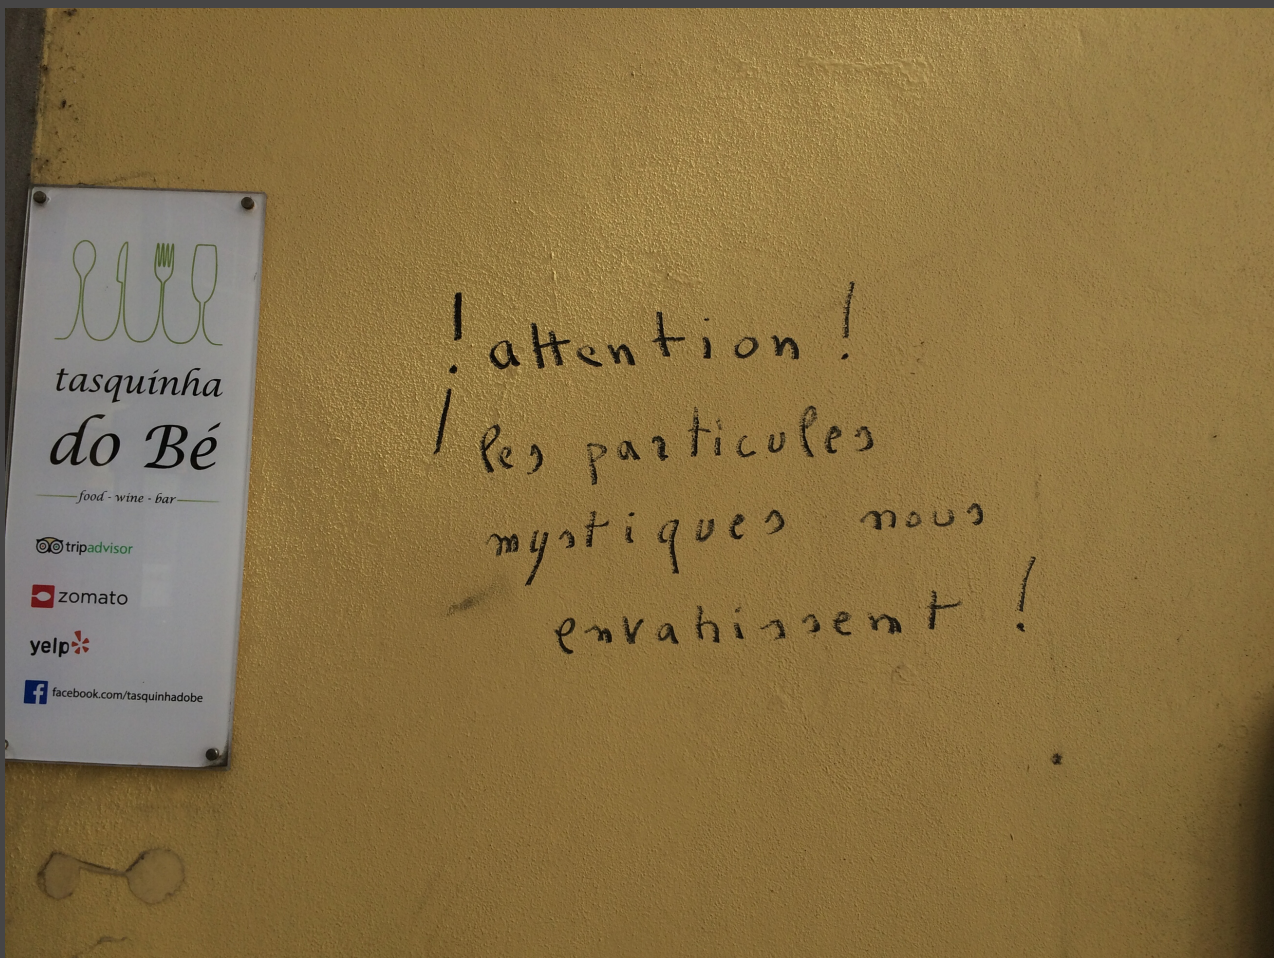 tasquinha
do Bé
food - wine - bar
tripadvisor
zomato
yelp
facebook.com/tasquinhadobe
! attention !
! les particules
mystiques nous
envahissent !